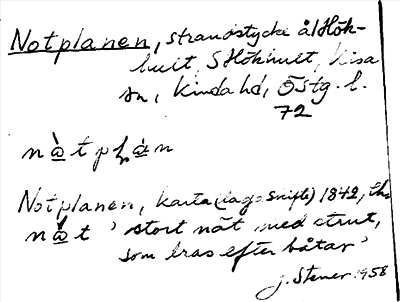 Notplanen, strandstycke å/Hök-
hult, S Hökhult, Kisa
sn, Kinda hd, Östg. l.
72
nò̱tplá̱n
Notplanen, karta (laga skifte) 1842,
nò̱t 'stort nät med strut,
som dras efter båtar'
J. Stener 1958